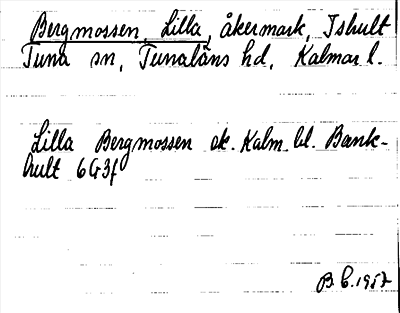 Bergmossen, Lilla, åkermark, Ishult
Tuna sn, Tunaläns hd, Kalmar l.
Lilla Bergmossen ek. Kalm. bl. Bank-
hult 6G3f
B. C. 1957